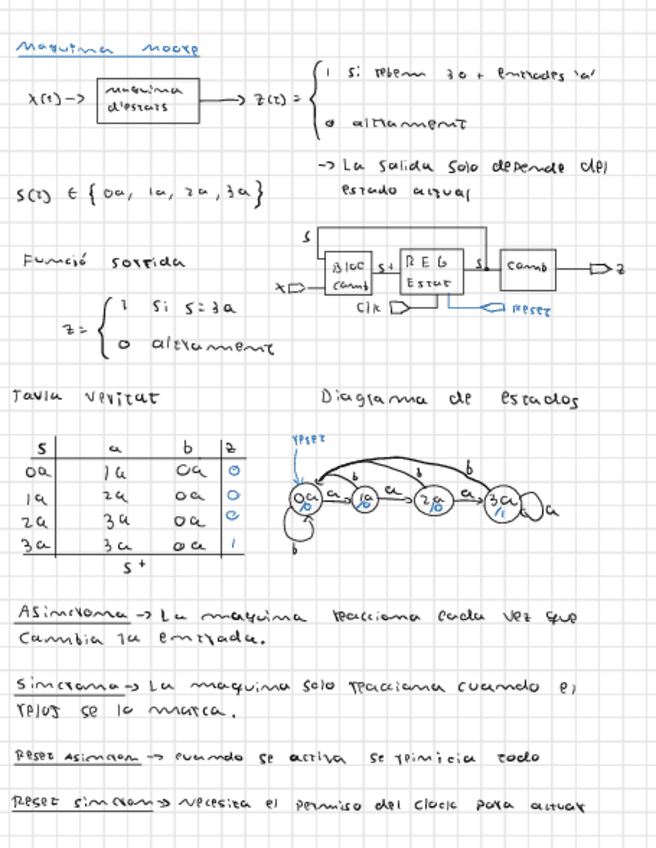 Maquina Moore
X(t) -> maquina d'estats -> Z(t) = { 1 si rebem 3 o + entrades 'a'
0 altrament
-> La salida solo depende del
estado actual
S(t) ∈ { 0a, 1a, 2a, 3a }
Funció sortida
Z = { 1 si s = 3a
0 altrament
S
X Bloc Comb S+ REG Estat S Comb Z
Clk reset
Taula veritat
S a b Z
0a 1a 0a 0
1a 2a 0a 0
2a 3a 0a 0
3a 3a 0a 1
S+
Diagrama de estados
reset
b b b
0a/0 a 1a/0 a 2a/0 a 3a/1 a
b
Asincrona -> La maquina reacciona cada vez que
cambia la entrada.
Sincrona -> La maquina solo reacciona cuando el
reloj se lo marca.
Reset Asincron -> cuando se activa se reinicia todo
Reset sincron -> necesita el permiso del clock para actuar